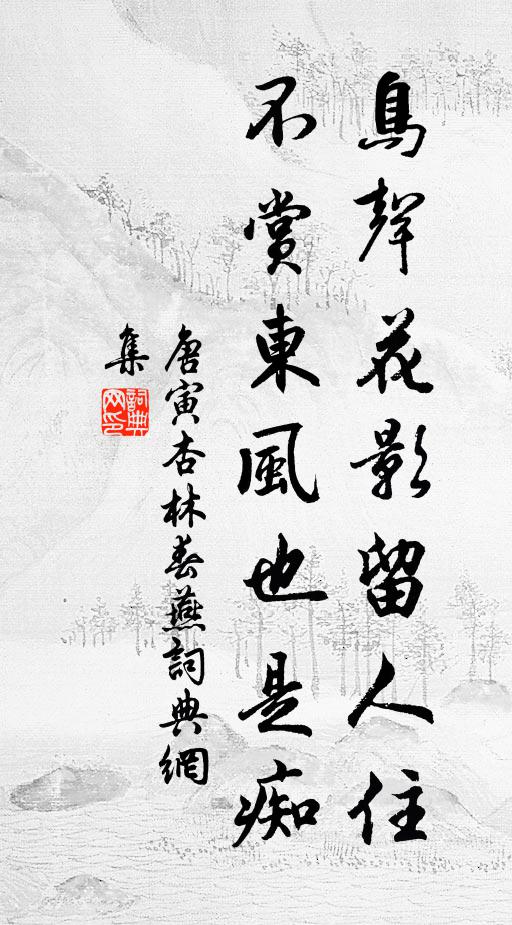 鳥聲花影留人住
不賞東風也是痴
唐寅杏林春燕詞典網
集
詞典
网印